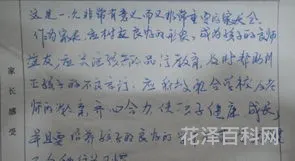 这是一次非常有意义而又非常重要的家长会。
作为家长，应树立良好的形象，成为孩子的良师
益友，应关注孩子品德教育，及时帮助纠
正孩子的不良言行。应积极配合学校及老
师的教育，齐心合力，使一孩子健康成长
并且要培养孩子的良好的
家长感受
花泽百科网